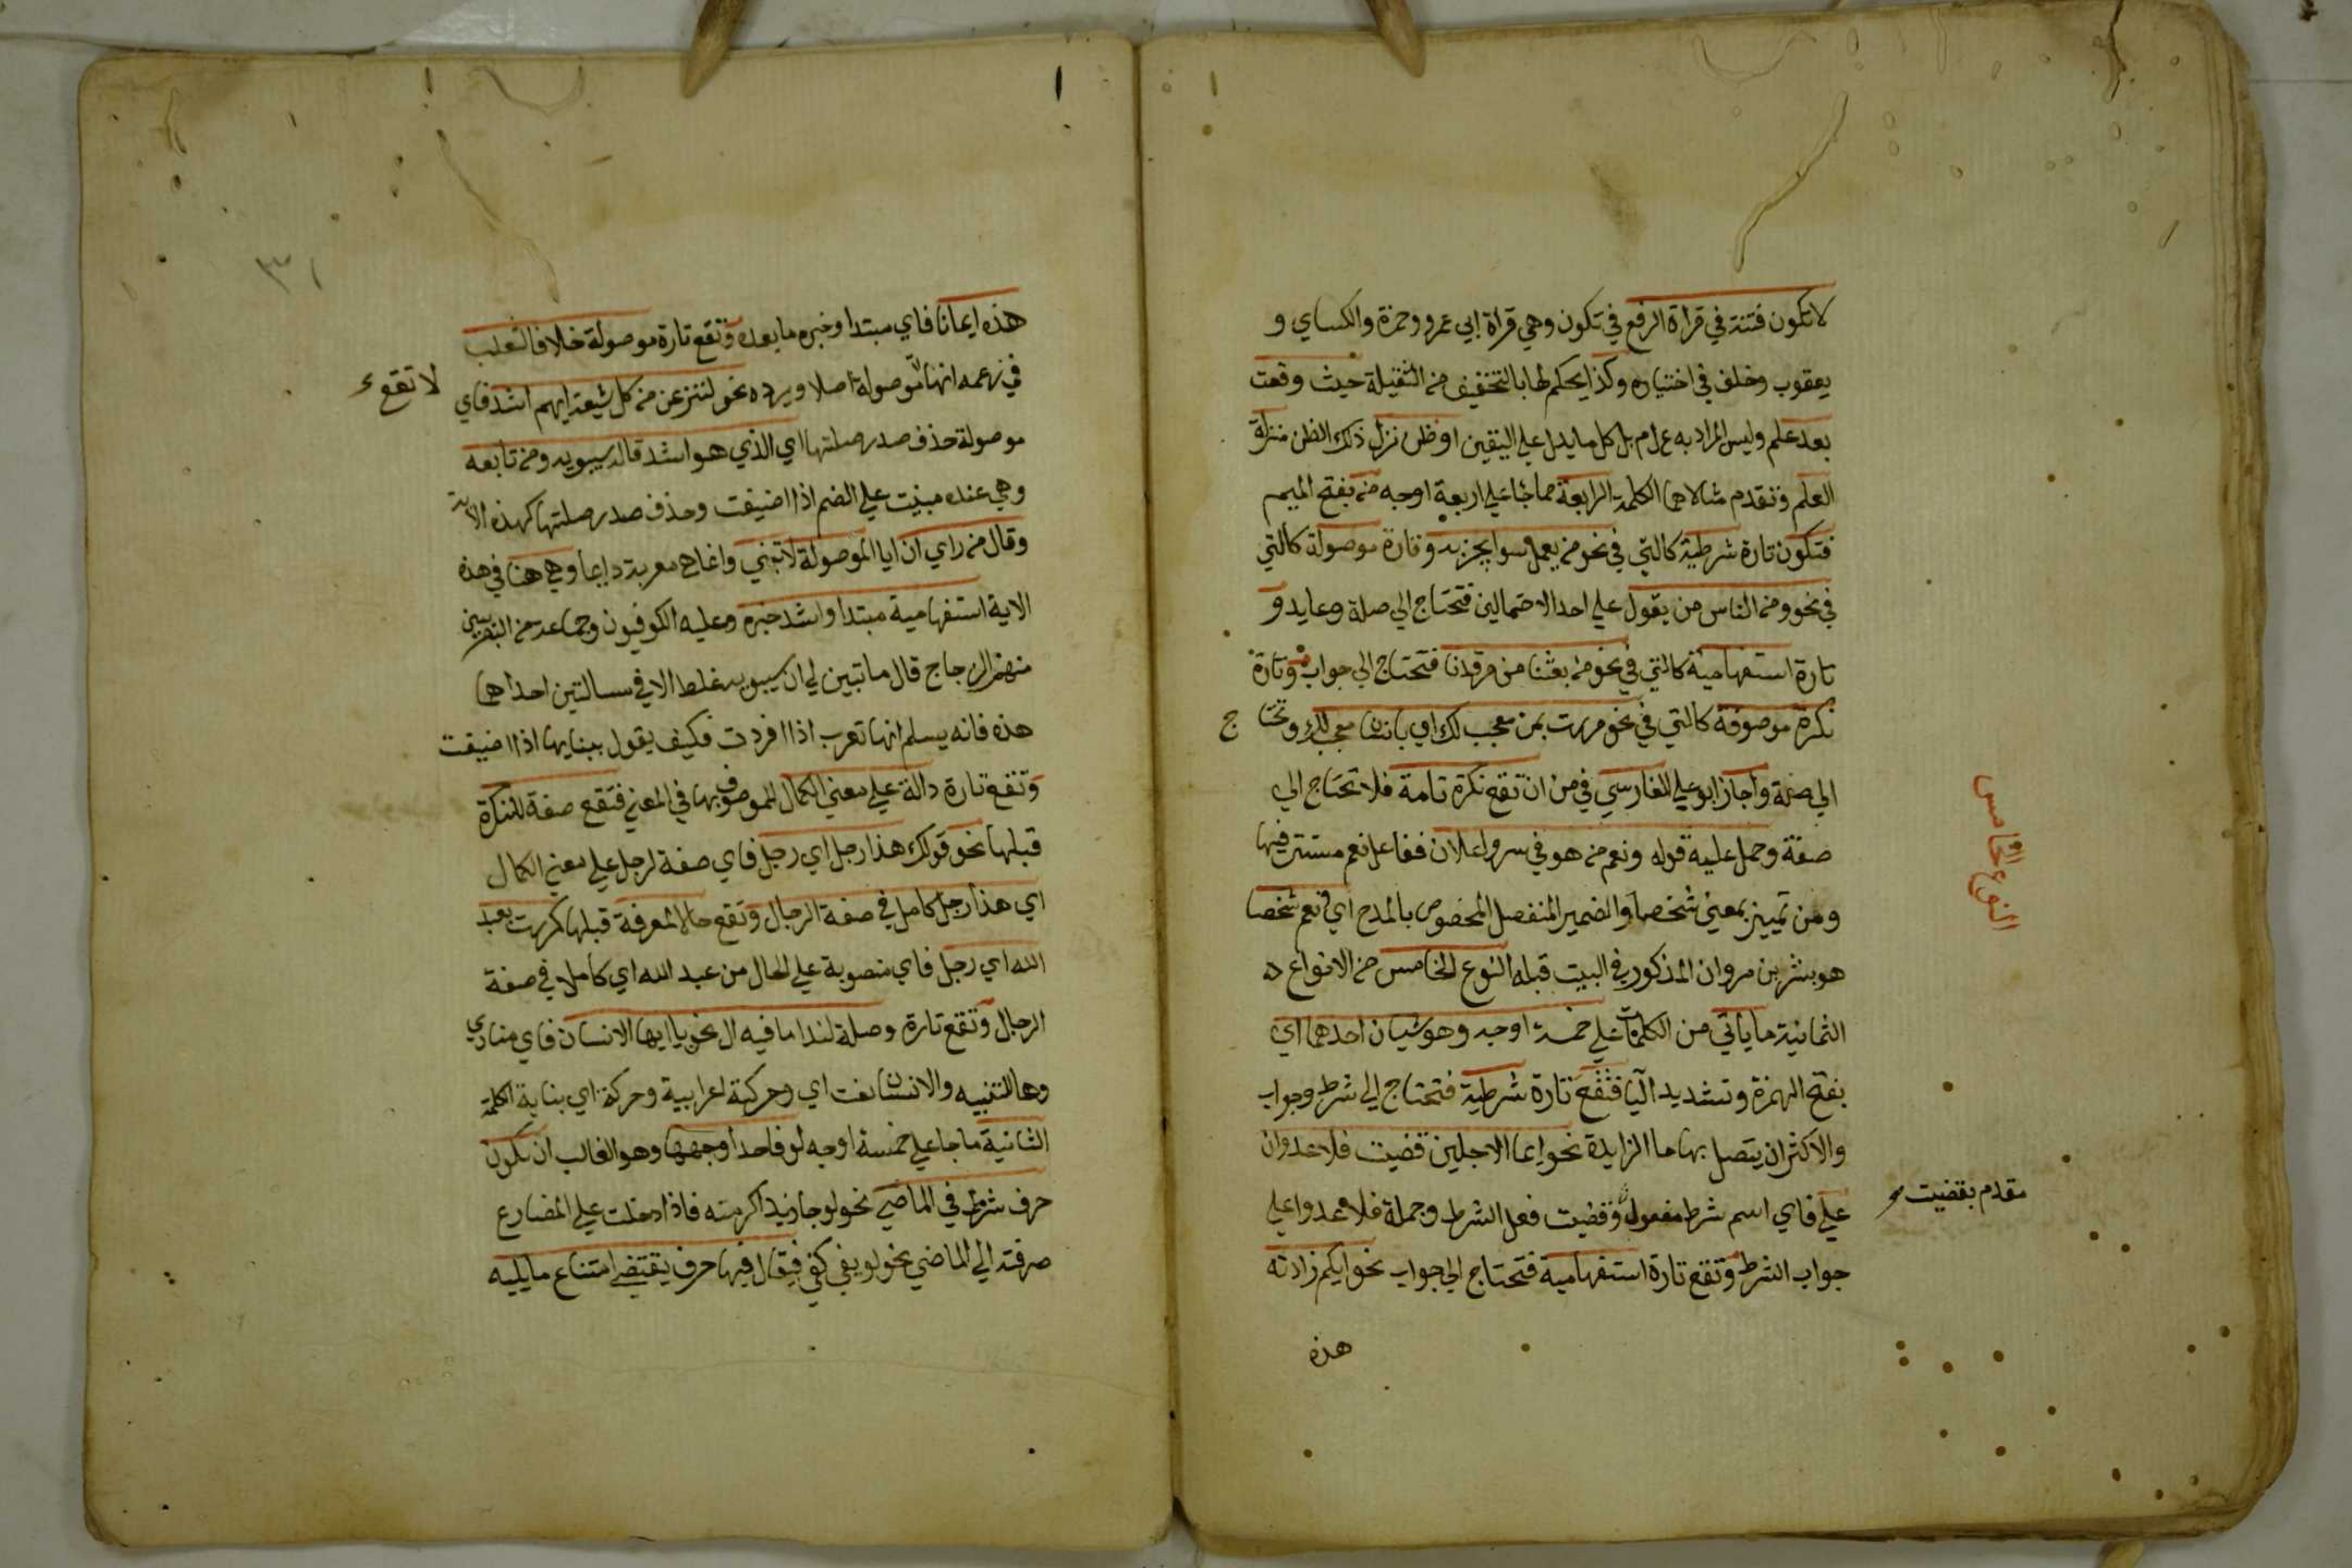 لا تكون فتنة في قراة الرفع في تكون وهي قراة ابي عمرو وحمزة والكساي و
يعقوب وخلف في اختياره وكذا يحكم لها بالتخفيف من الثقيلة حيث وقعت
بعد علم وليس المراد به ع ل م بل كل ما يدل علي اليقين او ظن نزل ذلك الظن منزلة
العلم وتقدم مثالاهما الكلمة الرابعة مما جا علي اربعة اوجه من بفتح الميم
فتكون تارة شرطية كالتي في نحو من يعمل سوا يجز به وتارة موصولة كالتي
في نحو ومن الناس من يقول علي احد الاحتمالين فتحتاج الي صلة وعايد و
تارة استفهامية كالتي في نحو من بعثنا من مرقدنا فتحتاج الي جواب وتارة
نكرة موصوفة كالتي في نحو مررت بمن معجب لك اي بانسان معجب لك وتحتا ج
الي صفة واجاز ابو علي الفارسي في من ان تقع نكرة تامة فلا تحتاج الي
صفة وحمل عليه قوله ونعم من هو في سر واعلان ففاعل نعم مستتر فيها
ومن تمييز بمعني شخصا والضمير المنفصل المخصوص بالمدح اي نعم شخصا
هو بشر بن مروان المذكور في البيت قبله النوع الخامس من الانواع
النوع الخامس
الثمانية ما ياتي من الكلمات علي خمسة اوجه وهو شيان احدهما اي
بفتح الهمزة وتشديد اليا فتقع تارة شرطية فتحتاج الي شرط وجواب
والاكثر ان يتصل بها ما الزايدة نحو ايما الاجلين قضيت فلا عدوان
علي فاي اسم شرط مفعول وقضيت فعل الشرط وجملة فلا عدوا علي
مقدم بقضيت
جواب الشرط وتقع تارة استفهامية فتحتاج الي جواب نحو ايكم زادته
هذه
٣١
هذه ايمانا فاي مبتدا وخبره ما بعده وتقع تارة موصولة خلافا لثعلب
في زعمه انها موصولة اصلا ويرده نحو لننزعن من كل شيعة ايهم اشد فاي
لا تقع
موصولة حذف صدر صلتها اي الذي هو اشد قاله سيبويه ومن تابعه
وهي عنده مبنية علي الضم اذا اضيفت وحذف صدر صلتها كهذه الاية
وقال من راي ان ايا الموصولة لا تبني وانما هي معربة دايما وهي هنا في هذه
الاية استفهامية مبتدا واشد خبره وعليه الكوفيون وجماعة من البصريين
منهم الزجاج قال ما تبين لي ان سيبويه غلط الا في مسالتين احداهما
هذه فانه يسلم انها تعرب اذا افردت فكيف يقول ببنايها اذا اضيفت
وتقع تارة دالة علي معني الكمال للموصوف بها في المعني فتقع صفة للنكرة
قبلها نحو قولك هذا رجل اي رجل فاي صفة لرجل علي معني الكمال
اي هذا رجل كامل في صفة الرجال وتقع حالا لمعرفة قبلها كمررت بعبد
الله اي رجل فاي منصوبة علي الحال من عبد الله اي كاملا في صفة
الرجال وتقع تارة وصلة لندا ما فيه ال نحو يا ايها الانسان فاي منادي
وها للتنبيه والانسان نعت اي وحركته اعرابية وحركة اي بناية الكلمة
الثانية ما جا علي خمسة اوجه لو فاحد اوجهها وهو الغالب ان تكون
حرف شرط في الماضي نحو لو جا زيد اكرمته فاذا دخلت علي المضارع
صرفته الي الماضي نحو لو يفي كفي فيقال فيها حرف يقتضي امتناع ما يليه